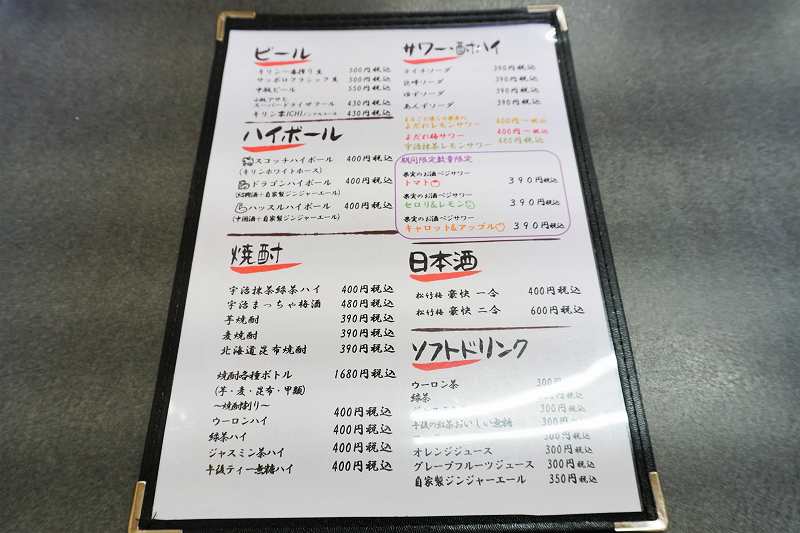 ビール
キリン一番搾り生 500円税込
サッポロクラシック生 500円税込
中瓶ビール 550円税込
小瓶アサヒ
スーパードライザクール 430円税込
キリン零ICHIノンアルコール 430円税込
ハイボール
スコッチハイボール 400円税込
(キリンホワイトホース)
ドラゴンハイボール 400円税込
(紹興酒+自家製ジンジャーエール)
ハッスルハイボール 400円税込
(中国酒+自家製ジンジャーエール)
焼酎
宇治抹茶緑茶ハイ 400円税込
宇治まっちゃ梅酒 480円税込
芋焼酎 390円税込
麦焼酎 390円税込
北海道昆布焼酎 390円税込
焼酎各種ボトル 1680円税込
(芋・麦・昆布・甲類)
~焼酎割り~
ウーロンハイ 400円税込
緑茶ハイ 400円税込
ジャスミン茶ハイ 400円税込
午後ティー無糖ハイ 400円税込
サワー・酎ハイ
ライチソーダ 390円税込
巨峰ソーダ 390円税込
ゆずソーダ 390円税込
あんずソーダ 390円税込
よだれレモンサワー 400円~税込
よだれ梅サワー 400円~税込
宇治抹茶レモンサワー 480円税込
期間限定数量限定
果実のお酒ベジサワー
トマト 390円税込
果実のお酒ベジサワー
セロリ&レモン 390円税込
果実のお酒ベジサワー
キャロット&アップル 390円税込
日本酒
松竹梅 豪快 一合 400円税込
松竹梅 豪快 二合 600円税込
ソフトドリンク
ウーロン茶 300円
緑茶 300円税込
300円税込
午後の紅茶おいしい無糖 300円税込
300円税込
オレンジジュース 300円税込
グレープフルーツジュース 300円税込
自家製ジンジャーエール 350円税込